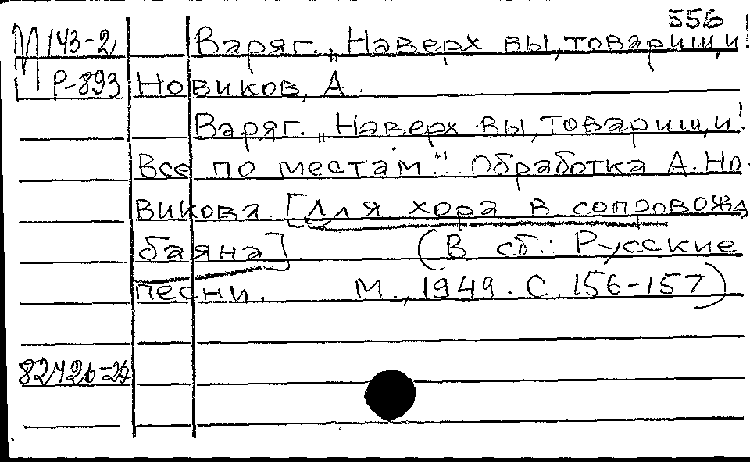 556
М 143-2 Варяг. „Наверх вы, товарищи!
Р-893 Новиков, А.
Варяг. „Наверх вы, товарищи!
Все по местам". Обработка А. Но-
викова [для хора в сопровожд
баяна] (В сб.: Русские
песни. М., 1949. С. 156-157)